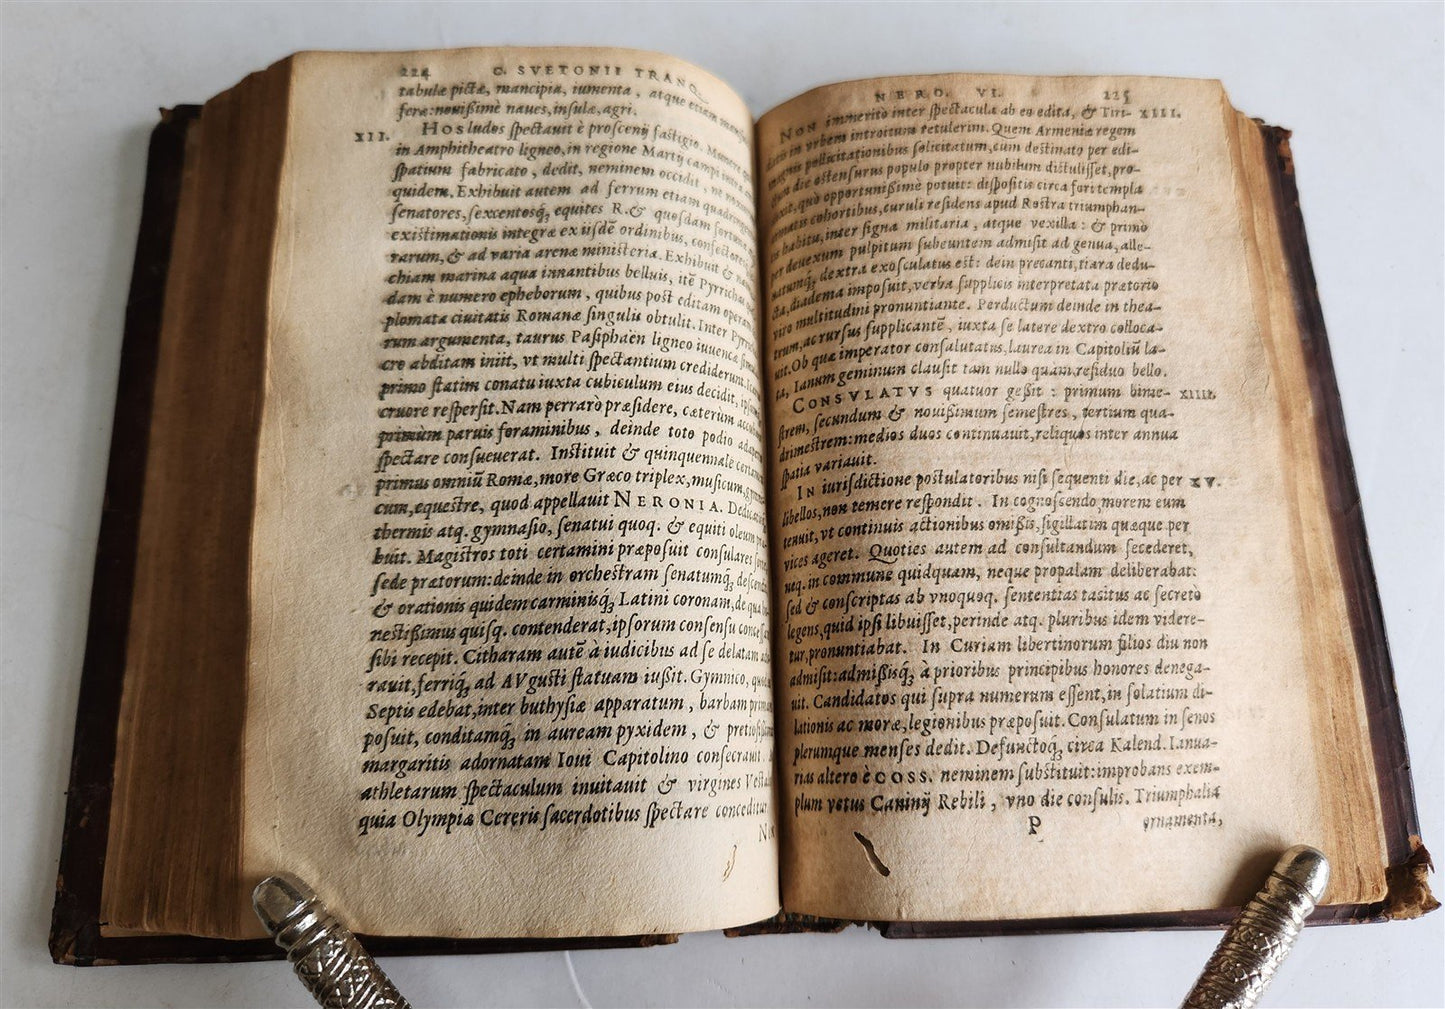 224 C. SVETONII TRANQ.
tabulæ pictæ, mancipia, iumenta, atque etiam
feræ: nouißimè naues, insulæ, agri.
XII. HOS ludos spectauit è proscenij fastigio. Munere
in Amphitheatro ligneo, in regione Martij campi
spatium fabricato, dedit, neminem occidit, ne
quidem. Exhibuit autem ad ferrum etiam
senatores, sexcentosq́ʒ equites R. & quosdam
existimationis integræ ex ijsdē ordinibus,
rarum, & ad varia arenæ ministeria. Exhibuit &
chiam marina aqua innantibus belluis, itē Pyrrichas
dam è numero epheborum, quibus post editam
plomata ciuitatis Romanæ singulis obtulit. Inter
rum argumenta, taurus Pasiphaën ligneo iuuencæ
cro abditam iniit, vt multi spectantium crediderunt.
primo statim conatu iuxta cubiculum eius decidit,
cruore respersit. Nam perrarò præsidere, cæterùm
primùm paruis foraminibus, deinde toto podio
spectare consueuerat. Instituit & quinquennale
primus omniū Romæ, more Græco triplex, musicum,
cum, equestre, quod appellauit NERONIA.
thermis atq. gymnasio, senatui quoq. & equiti oleum
buit. Magistros toti certamini præposuit consulares
sede prætorum: deinde in orchestram senatumq́ʒ
& orationis quidem carminisq́ʒ Latini coronam, de qua
nestißimus quisq. contenderat, ipsorum consensu
sibi recepit. Citharam autē à iudicibus ad se delatam
rauit, ferriq́ʒ ad AVgusti statuam iußit. Gymnico,
Septis edebat, inter buthysiæ apparatum, barbam
posuit, conditamq́ʒ in auream pyxidem, &
margaritis adornatam Ioui Capitolino consecrauit.
athletarum spectaculum inuitauit & virgines
quia Olympia Cereris sacerdotibus spectare conceditur.
NERO. VI. 225
NON immeritò inter spectacula ab eo edita, & Tiri- XIII.
datis in vrbem introitum retulerim. Quem Armeniæ regem
magnis pollicitationibus solicitatum, cum destinato per edi-
ctum die ostensurus populo propter nubilum distulisset, pro-
duxit, quò opportunißimè potuit: dispositis circa fori templa
armatis cohortibus, curuli residens apud Rostra triumphan-
tis habitu, inter signa militaria, atque vexilla: & primò
per deuexum pulpitum subeuntem admisit ad genua, alle-
uatumq́ʒ dextra exosculatus est: dein precanti, tiara dedu-
cta, diadema imposuit, verba supplicis interpretata prætorio
viro multitudini pronuntiante. Perductum deinde in thea-
trum, ac rursus supplicantē, iuxta se latere dextro colloca-
uit. Ob quæ imperator consalutatus, laurea in Capitoliū la-
ta, Ianum geminum clausit tam nullo quàm residuo bello.
CONSVLATVS quatuor geßit: primum bime- XIIII.
strem, secundum & nouißimum semestres, tertium qua-
drimestrem: medios duos continuauit, reliquos inter annua
spatia variauit.
IN iurisdictione postulatoribus nisi sequenti die, ac per XV.
libellos, non temere respondit. In cognoscendo morem eum
tenuit, vt continuis actionibus omißis, sigillatim quæque per
vices ageret. Quoties autem ad consultandum secederet,
neq. in commune quidquam, neque propalam deliberabat:
sed & conscriptas ab vnoquoq. sententias tacitus ac secretò
legens, quid ipsi libuisset, perinde atq. pluribus idem videre-
tur, pronuntiabat. In Curiam libertinorum filios diu non
admisit: admißisq́ʒ à prioribus principibus honores denega-
uit. Candidatos qui supra numerum essent, in solatium di-
lationis ac moræ, legionibus præposuit. Consulatum in senos
plerumque menses dedit. Defunctoq́ʒ circa Kalend. Ianua-
rias altero è COSS. neminem substituit: improbans exem-
plum vetus Caninij Rebili, vno die consulis. Triumphalia
P ornamenta,